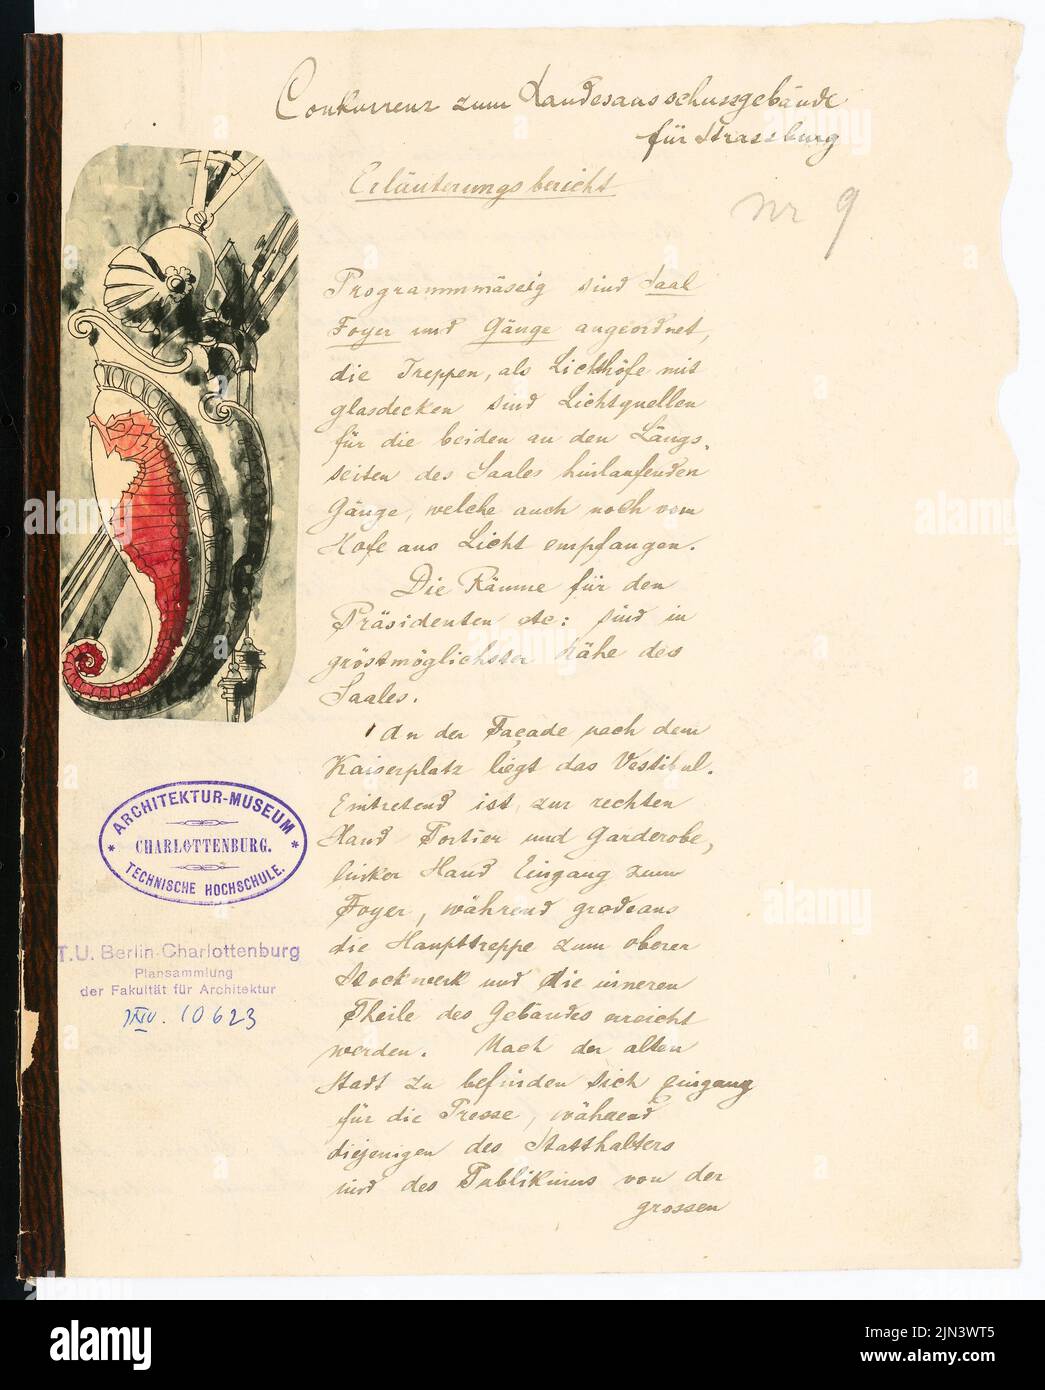 Conkurrenz zum Landesausschussgebäude
für Strassburg
Erläuterungsbericht
Nr 9
Programmmässig sind Saal
Foyer und Gänge angeordnet,
die Treppen, als Lichthöfe mit
glasdecken sind Lichtquellen
für die beiden an den Längs-
seiten des Saales hinlaufenden
Gänge, welche auch noch vom
Hofe aus Licht empfangen.
Die Räume für den
Präsidenten etc: sind in
grösstmöglichster Nähe des
Saales.
An der Façade nach dem
Kaiserplatz liegt das Vestibul.
Eintretend ist zur rechten
Hand Portier und Garderobe,
linker Hand Eingang zum
Foyer, während gradeaus
die Haupttreppe zum oberen
Stockwerk und die inneren
Theile des Gebäudes erreicht
werden. Nach der alten
Stadt zu befinden sich eingang
für die Presse, während
diejenigen des Statthalters
und des Publikums von der
grossen
ARCHITEKTUR-MUSEUM
CHARLOTTENBURG.
TECHNISCHE HOCHSCHULE.
T.U. Berlin-Charlottenburg
Plansammlung
der Fakultät für Architektur
Inv. 10623
alamy
Image ID: 2JN3WT5
www.alamy.com